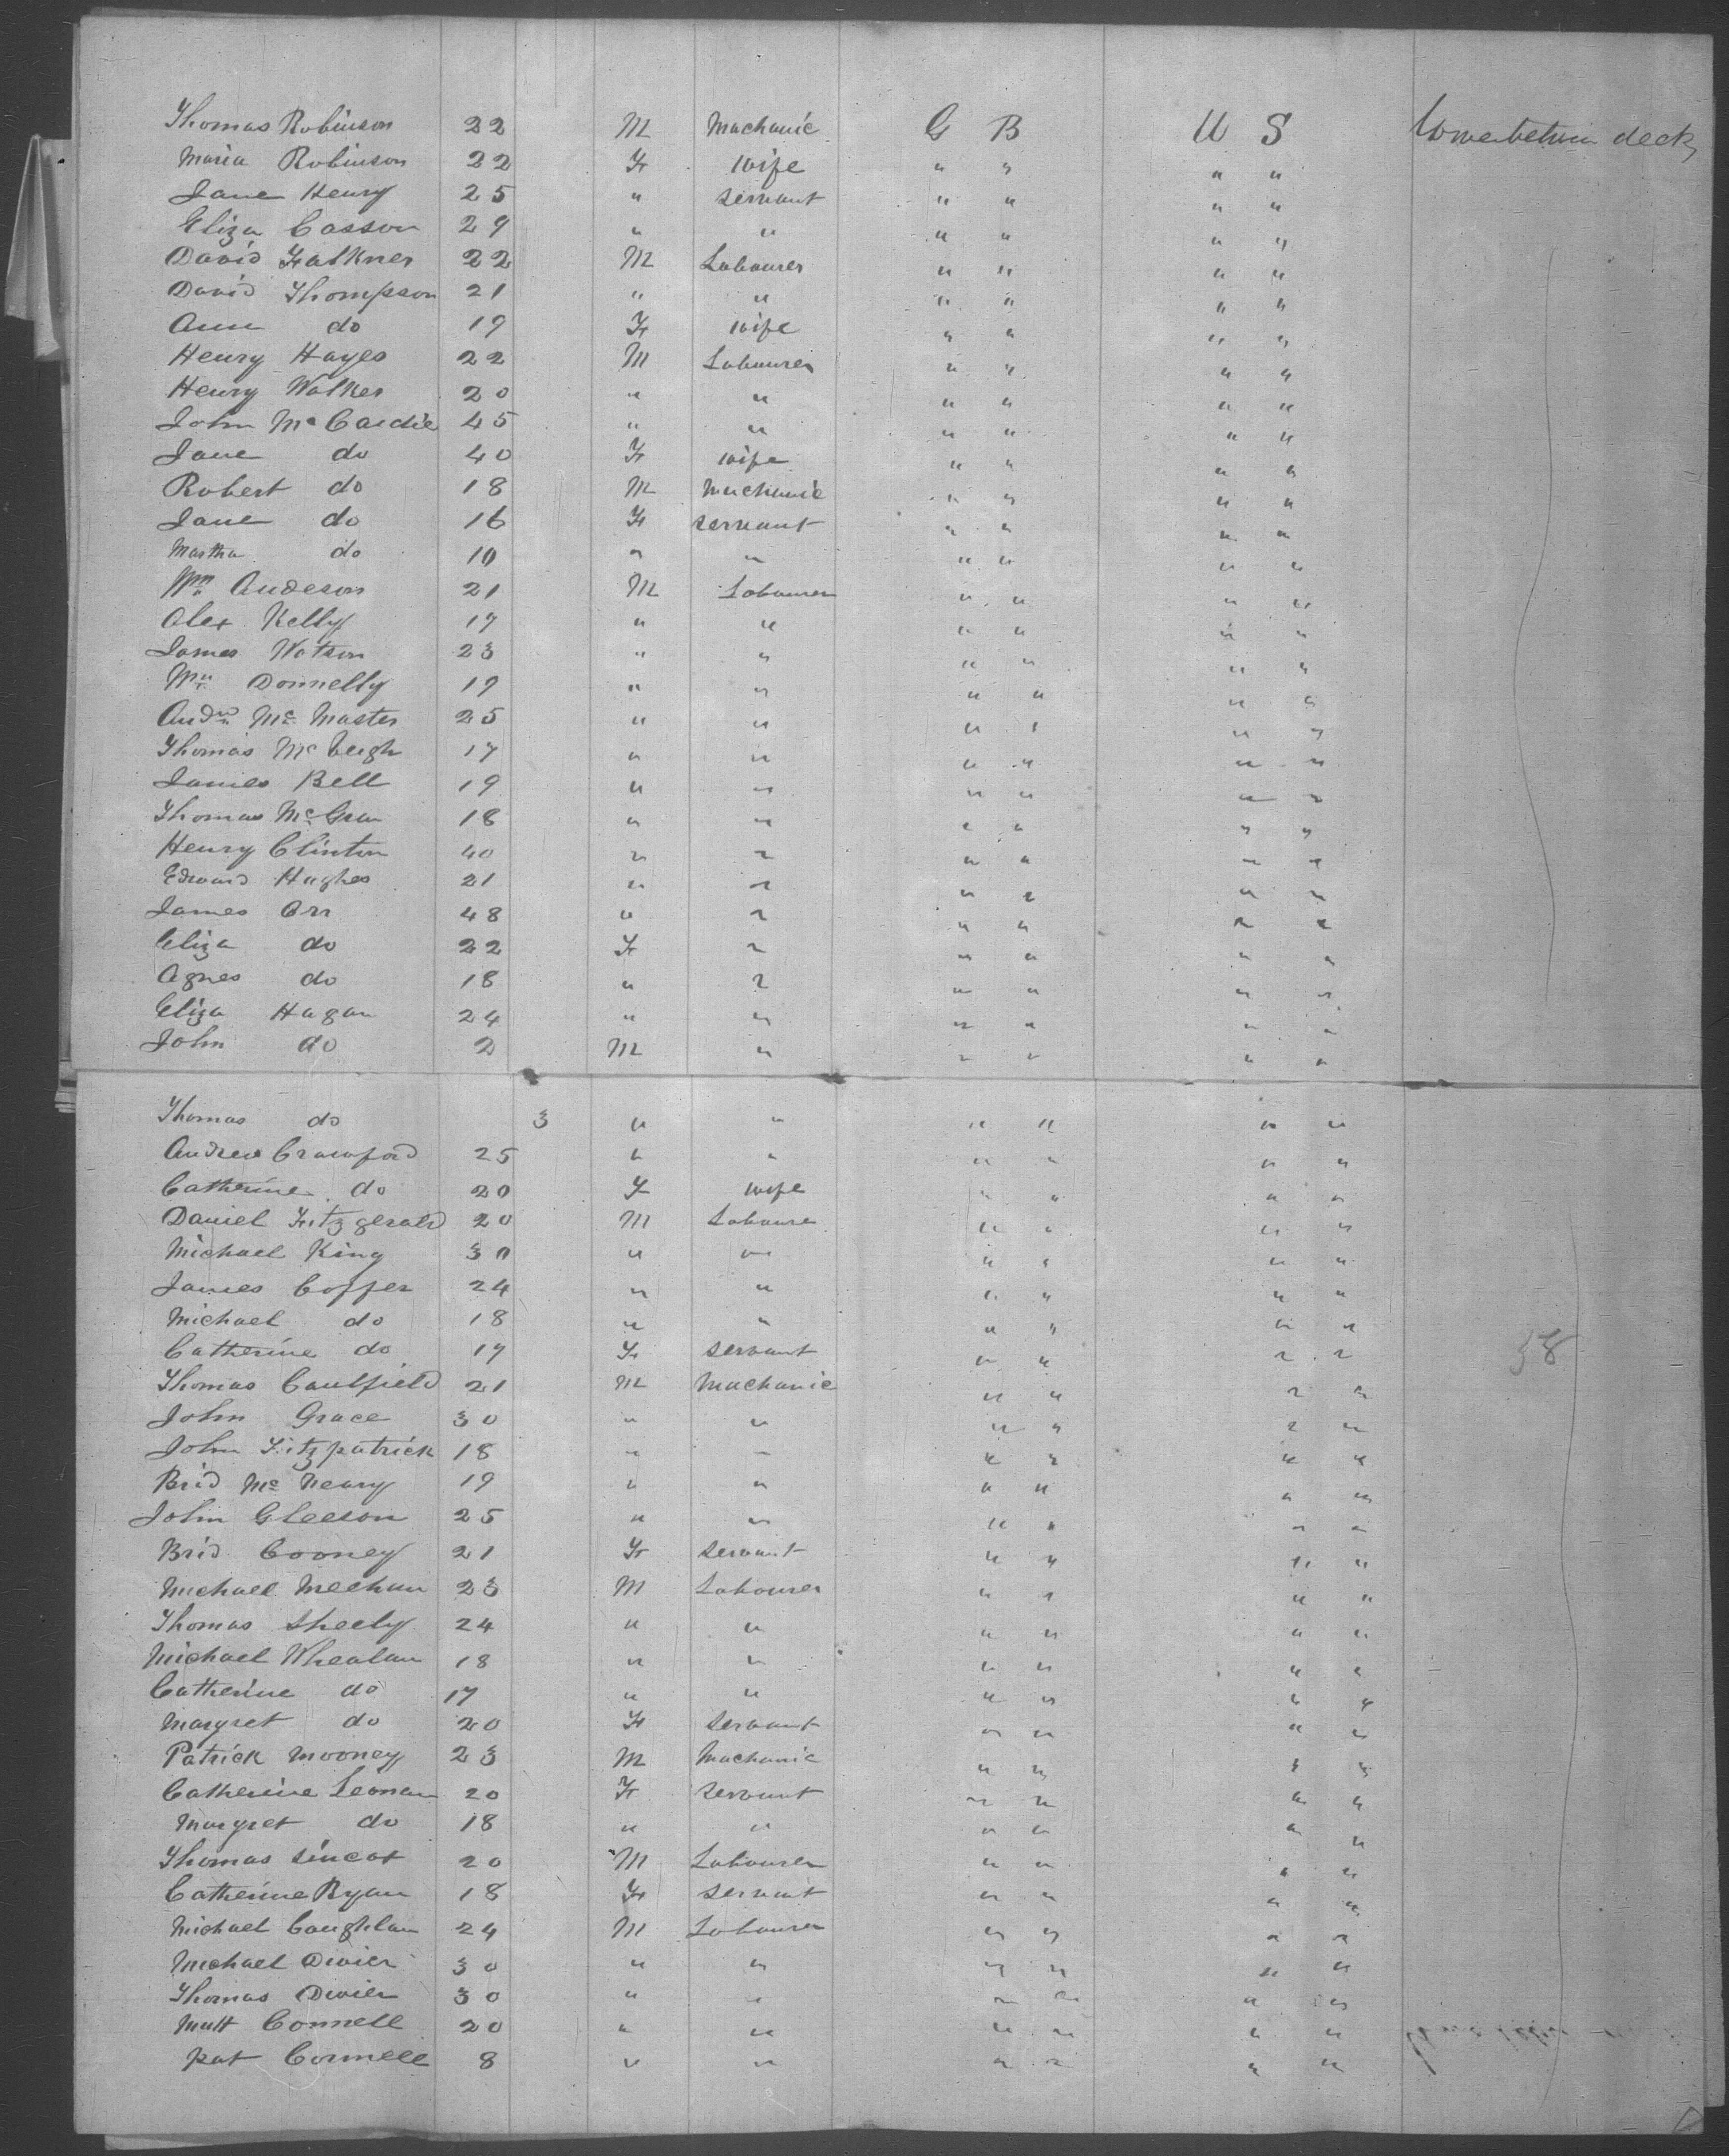 Thomas Robinson 22 M Machanic G B U S Lower between deck
Maria Robinson 22 F wife " " " "
Jane Henry 25 " servant " " " "
Eliza Casson 29 " " " " " "
David Falkner 22 M Labourer " " " "
David Thompson 21 " " " " " "
Ann do 19 F wife " " " "
Henry Hayes 22 M Labourer " " " "
Henry Walker 20 " " " " " "
John Mc Cardie 45 " " " " " "
Jane do 40 F wife " " " "
Robert do 18 M Machanic " " " "
Jane do 16 F servant " " " "
Martha do 10 " " " " " "
Wm Andeson 21 M Labourer " " " "
Alex Kelly 17 " " " " " "
James Watson 23 " " " " " "
Wm Donnelly 19 " " " " " "
Andw Mc Master 25 " " " " " "
Thomas Mc Veigh 17 " " " " " "
James Bell 19 " " " " " "
Thomas Mc Gran 18 " " " " " "
Henry Clinton 40 " " " " " "
Edward Hughes 21 " " " " " "
James Orr 48 " " " " " "
Eliza do 22 F " " " " "
Agnes do 18 " " " " " "
Eliza Hagan 24 " " " " " "
John do 2 M " " " " "
Thomas do 3 " " " " " "
Andrew Crawford 25 " " " " " "
Catherine do 20 F wife " " " "
Daniel Fitzgerald 20 M Labourer " " " "
Michael King 30 " " " " " "
James Coffer 24 " " " " " "
Michael do 18 " " " " " "
Catherine do 17 F servant " " " " 58
Thomas Caulfield 21 M Machanic " " " "
John Grace 30 " " " " " "
John Fitzpatrick 18 " " " " " "
Brid Mc Neary 19 " " " " " "
John Gleeson 25 " " " " " "
Brid Cooney 21 F servant " " " "
Michael Meehan 23 M Labourer " " " "
Thomas Sheely 24 " " " " " "
Michael Whealan 18 " " " " " "
Catherine do 17 " " " " " "
Margret do 20 F servant " " " "
Patrick Mooney 23 M Machanic " " " "
Catherine Leonan 20 F servant " " " "
Margret do 18 " " " " " "
Thomas 20 M Labourer " " " "
Catherine Ryan 18 F servant " " " "
Michael Coughlan 24 M Labourer " " " "
Michael Dwier 30 " " " " " "
Thomas Dwier 30 " " " " " "
Matt Connell 20 " " " " " "
Pat Connell 8 " " " " " "